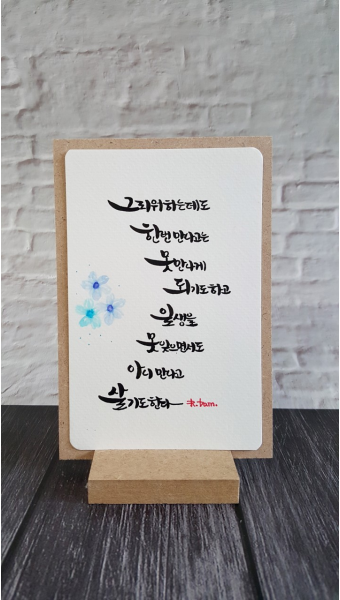 그리워하는데도
한번 만나고는
못만나게
되기도하고
일생을
못잊으면서도
아니 만나고
살기도한다